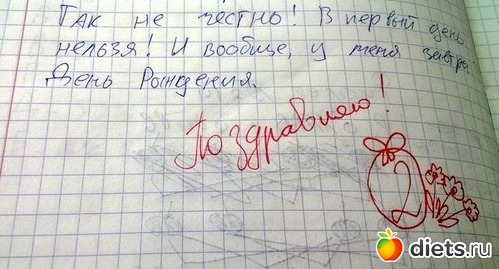 Так не честно! В первый день
нельзя! И вообще, у меня завтра
День Рождения.
Поздравляю!
2
diets.ru